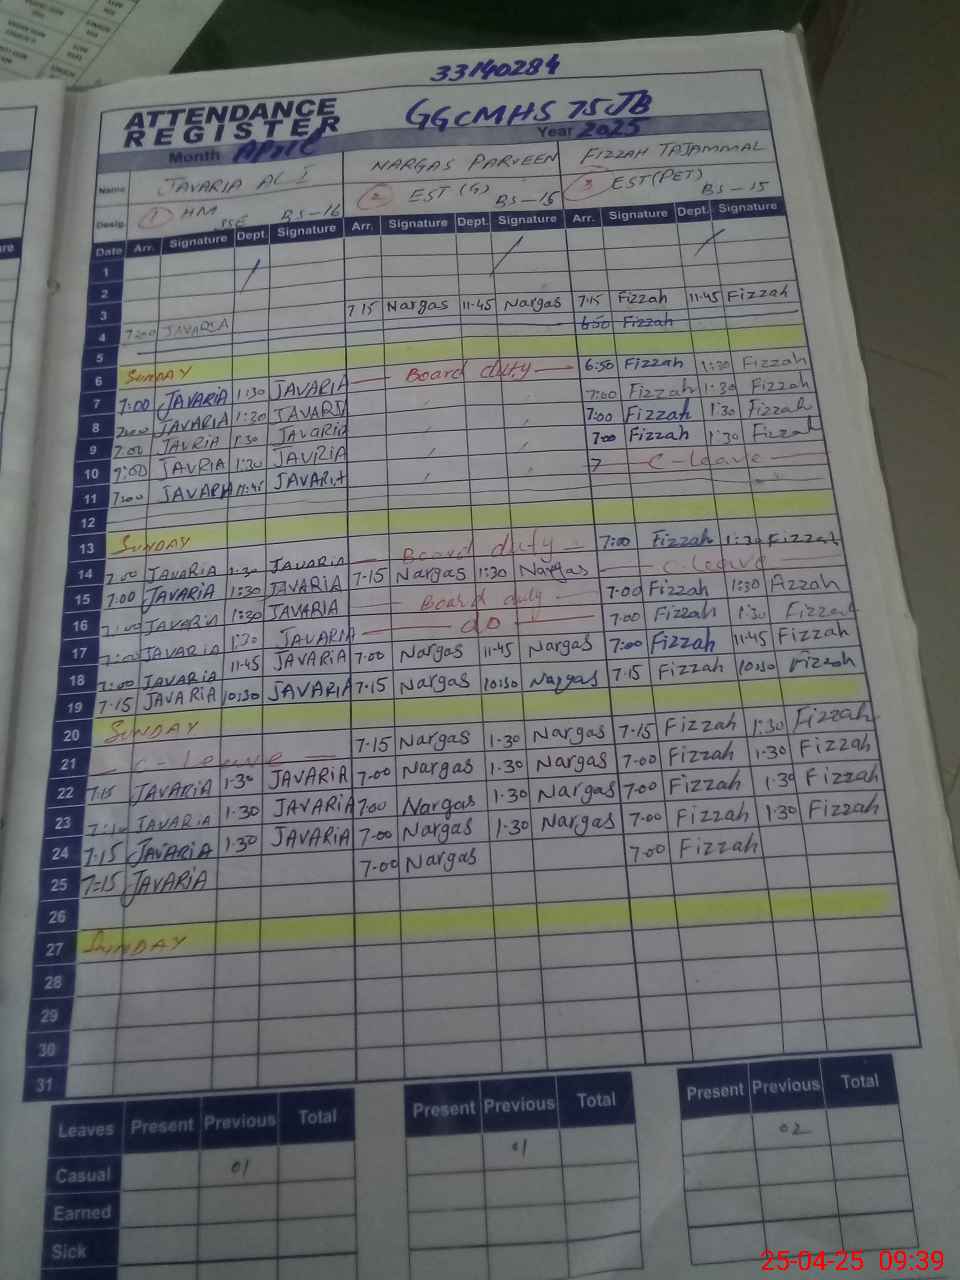 33140284
ATTENDANCE REGISTER GGCMHS 75JB
Month April Year 2025
Name JAVARIA ALI NARGAS PARVEEN FIZZAH TAJAMMAL
Desig. 1 HM SSE BS-16 2 EST (G) BS-15 3 EST(PET) BS-15
Date Arr. Signature Dept. Signature Arr. Signature Dept. Signature Arr. Signature Dept. Signature
1
2
3 7-15 Nargas 11-45 Nargas 7-15 Fizzah 11-45 Fizzah
4 7:00 JAVARIA 6:50 Fizzah
5
6 SUNDAY
7 7:00 JAVARIA 1:30 JAVARIA Board duty 6:50 Fizzah 1:30 Fizzah
8 7:00 JAVARIA 1:30 JAVARIA 7:00 Fizzah 1:30 Fizzah
9 7:00 JAVRIA 1:30 JAVARIA 7:00 Fizzah 1:30 Fizzah
10 7:00 JAVRIA 1:30 JAVRIA 7:00 Fizzah 1:30 Fizzah
11 7:00 JAVARIA 11:45 JAVARIA C-leave
12
13 SUNDAY
14 7:00 JAVARIA 1:30 JAVARIA Board duty 7:00 Fizzah 1:30 Fizzah
15 7:00 JAVARIA 1:30 JAVARIA 7-15 Nargas 1:30 Nargas C-leave
16 7:00 JAVARIA 1:30 JAVARIA Board duty 7:00 Fizzah 1:30 Fizzah
17 7:00 JAVARIA 1:30 JAVARIA 7:00 Fizzah 1:30 Fizzah
18 7:00 JAVARIA 11-45 JAVARIA 7-00 Nargas 11-45 Nargas 7:00 Fizzah 11-45 Fizzah
19 7-15 JAVARIA 10:30 JAVARIA 7-15 Nargas 10:30 Nargas 7-15 Fizzah 10:30 Fizzah
20 SUNDAY
21 C-leave 7-15 Nargas 1-30 Nargas 7-15 Fizzah 1:30 Fizzah
22 7:15 JAVARIA 1-30 JAVARIA 7-00 Nargas 1-30 Nargas 7-00 Fizzah 1-30 Fizzah
23 JAVARIA 1-30 JAVARIA 7:00 Nargas 1-30 Nargas 7-00 Fizzah 1-30 Fizzah
24 7-15 JAVARIA 1-30 JAVARIA 7-00 Nargas 1-30 Nargas 7-00 Fizzah 1-30 Fizzah
25 7:15 JAVARIA 7-00 Nargas 7-00 Fizzah
26
27 SUNDAY
28
29
30
31
Leaves Present Previous Total Present Previous Total Present Previous Total
Casual 01 01 02
Earned
Sick
25-04-25 09:39